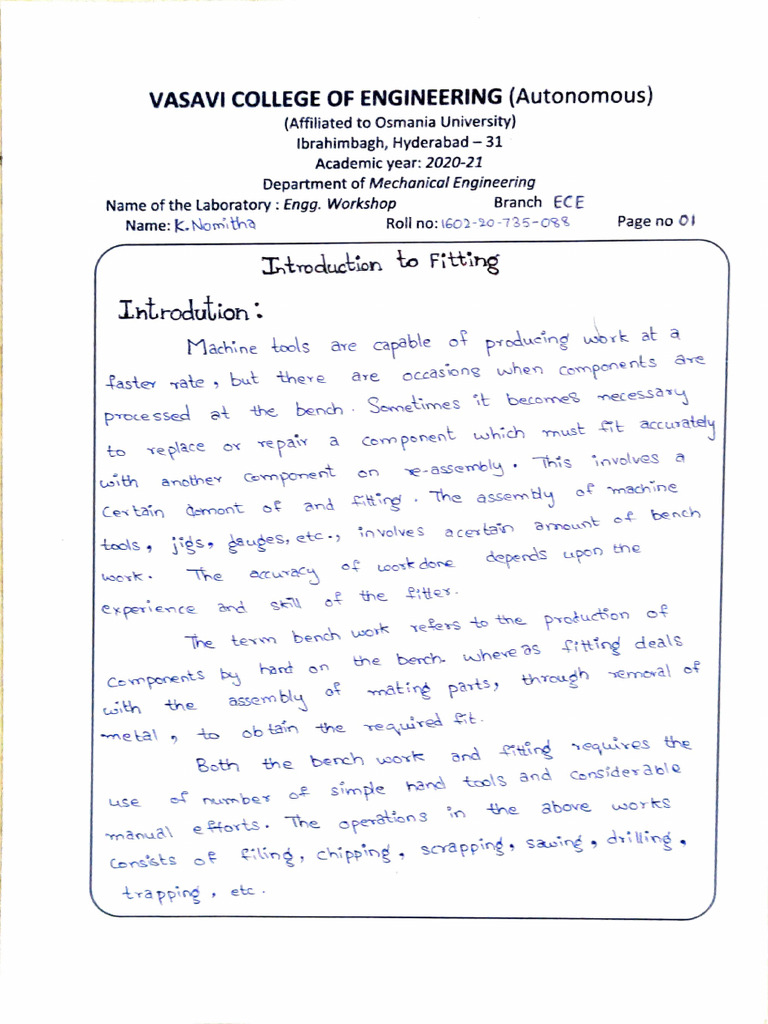 VASAVI COLLEGE OF ENGINEERING (Autonomous)
(Affiliated to Osmania University)
Ibrahimbagh, Hyderabad – 31
Academic year: 2020-21
Department of Mechanical Engineering
Name of the Laboratory : Engg. Workshop Branch ECE
Name: K. Nomitha Roll no: 1602-20-735-088 Page no 01
Introduction to Fitting
Introdution :
Machine tools are capable of producing work at a
faster rate, but there are occasions when components are
processed at the bench. Sometimes it becomes necessary
to replace or repair a component which must fit accurately
with another component on re-assembly. This involves a
certain of and fitting. The assembly of machine
tools, jigs, gauges, etc., involves acertain amount of bench
work. The accuracy of workdone depends upon the
experience and skill of the fitter.
The term bench work refers to the production of
components by hand on the bench. where as fitting deals
with the assembly of mating parts, through removal of
metal, to obtain the required fit.
Both the bench work and fitting requires the
use of number of simple hand tools and considerable
manual efforts. The operations in the above works
consists of filing, chipping, scrapping, sawing, drilling,
trapping, etc.